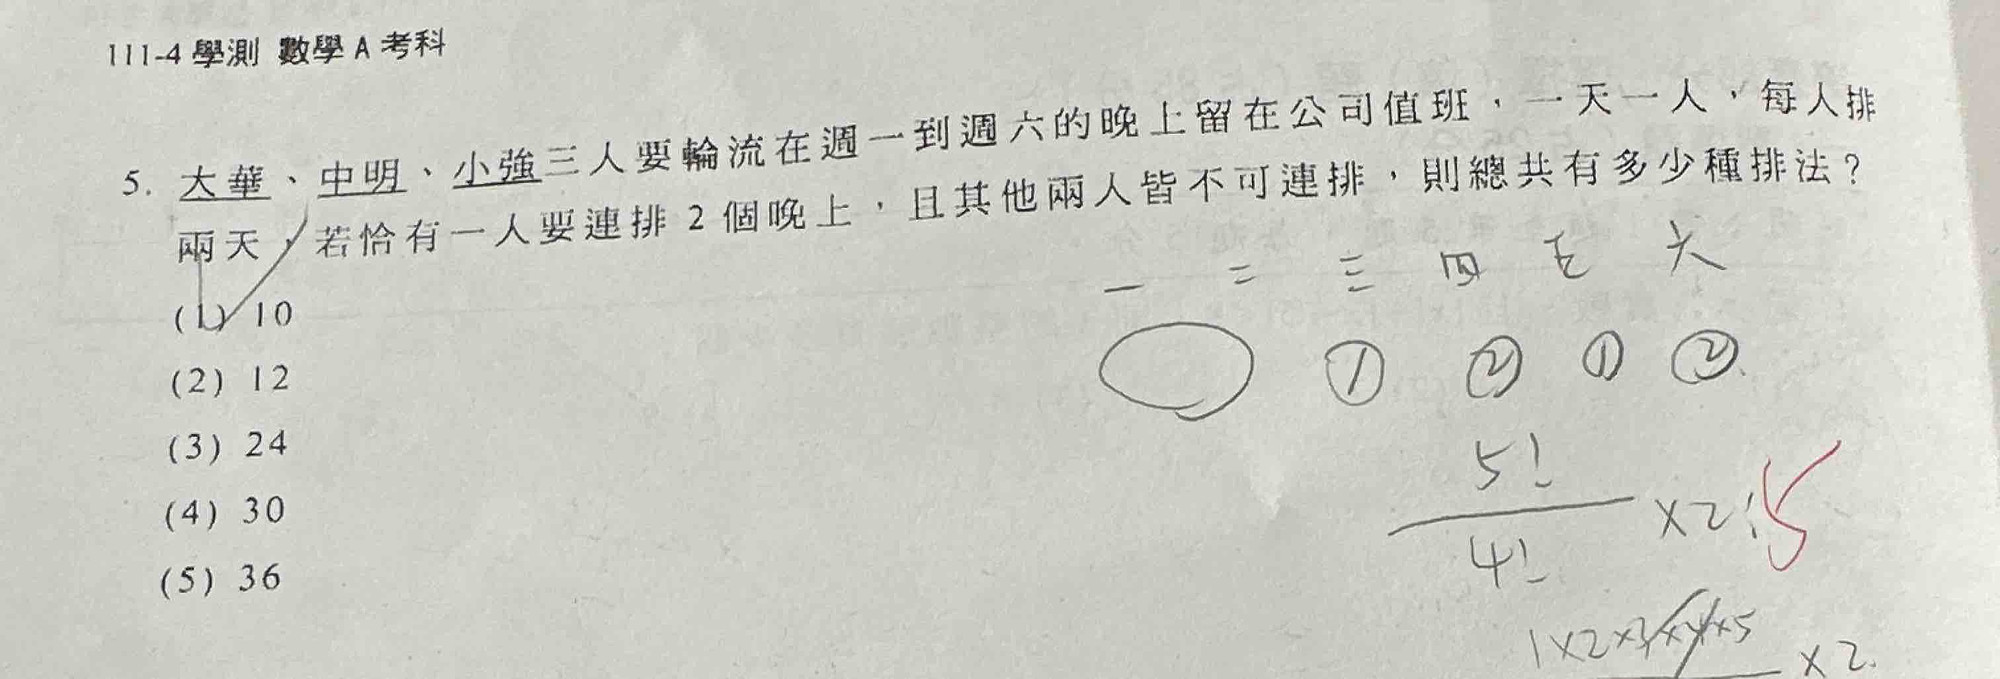 111-4 學測 數學 A 考科
5. 大華、中明、小強三人要輪流在週一到週六的晚上留在公司值班，一天一人，每人排
兩天，若恰有一人要連排 2 個晚上，且其他兩人皆不可連排，則總共有多少種排法？
(1) 10
(2) 12
(3) 24
(4) 30
(5) 36
一 二 三 四 五 六
① ② ① ②
5!
4!
×2!
5
1×2×3×4×5
×2.